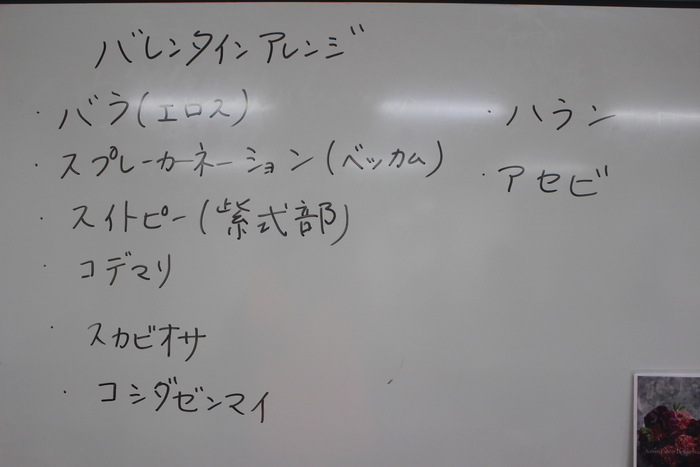 バレンタインアレンジ
・バラ(エロス)
・スプレーカーネーション(ベッカム)
・スイトピー(紫式部)
・コデマリ
・スカビオサ
・コシダゼンマイ
・ハラン
・アセビ